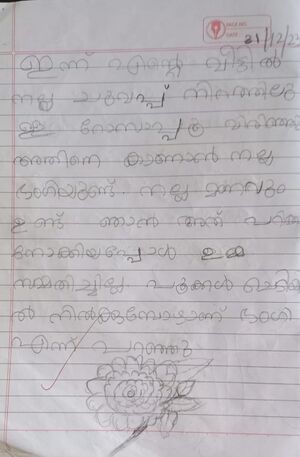 PAGE NO.
DATE 31/12/22
ഇന്ന് എന്റെ വീട്ടിൽ
നല്ല ചുവപ്പ് നിറത്തിലു
ള്ള റോസാപ്പൂ വിരിഞ്ഞു
അതിനെ കാണാൻ നല്ല
ഭംഗിയുണ്ട്. നല്ല മണവും
ഉണ്ട് ഞാൻ അത് പറിക്കാ
നോക്കിയപ്പോൾ ഉമ്മ
സമ്മതിച്ചില്ല. പൂക്കൾ ചെടിയി
ൽ നിൽക്കുമ്പോഴാണ് ഭംഗി
എന്ന് പറഞ്ഞു